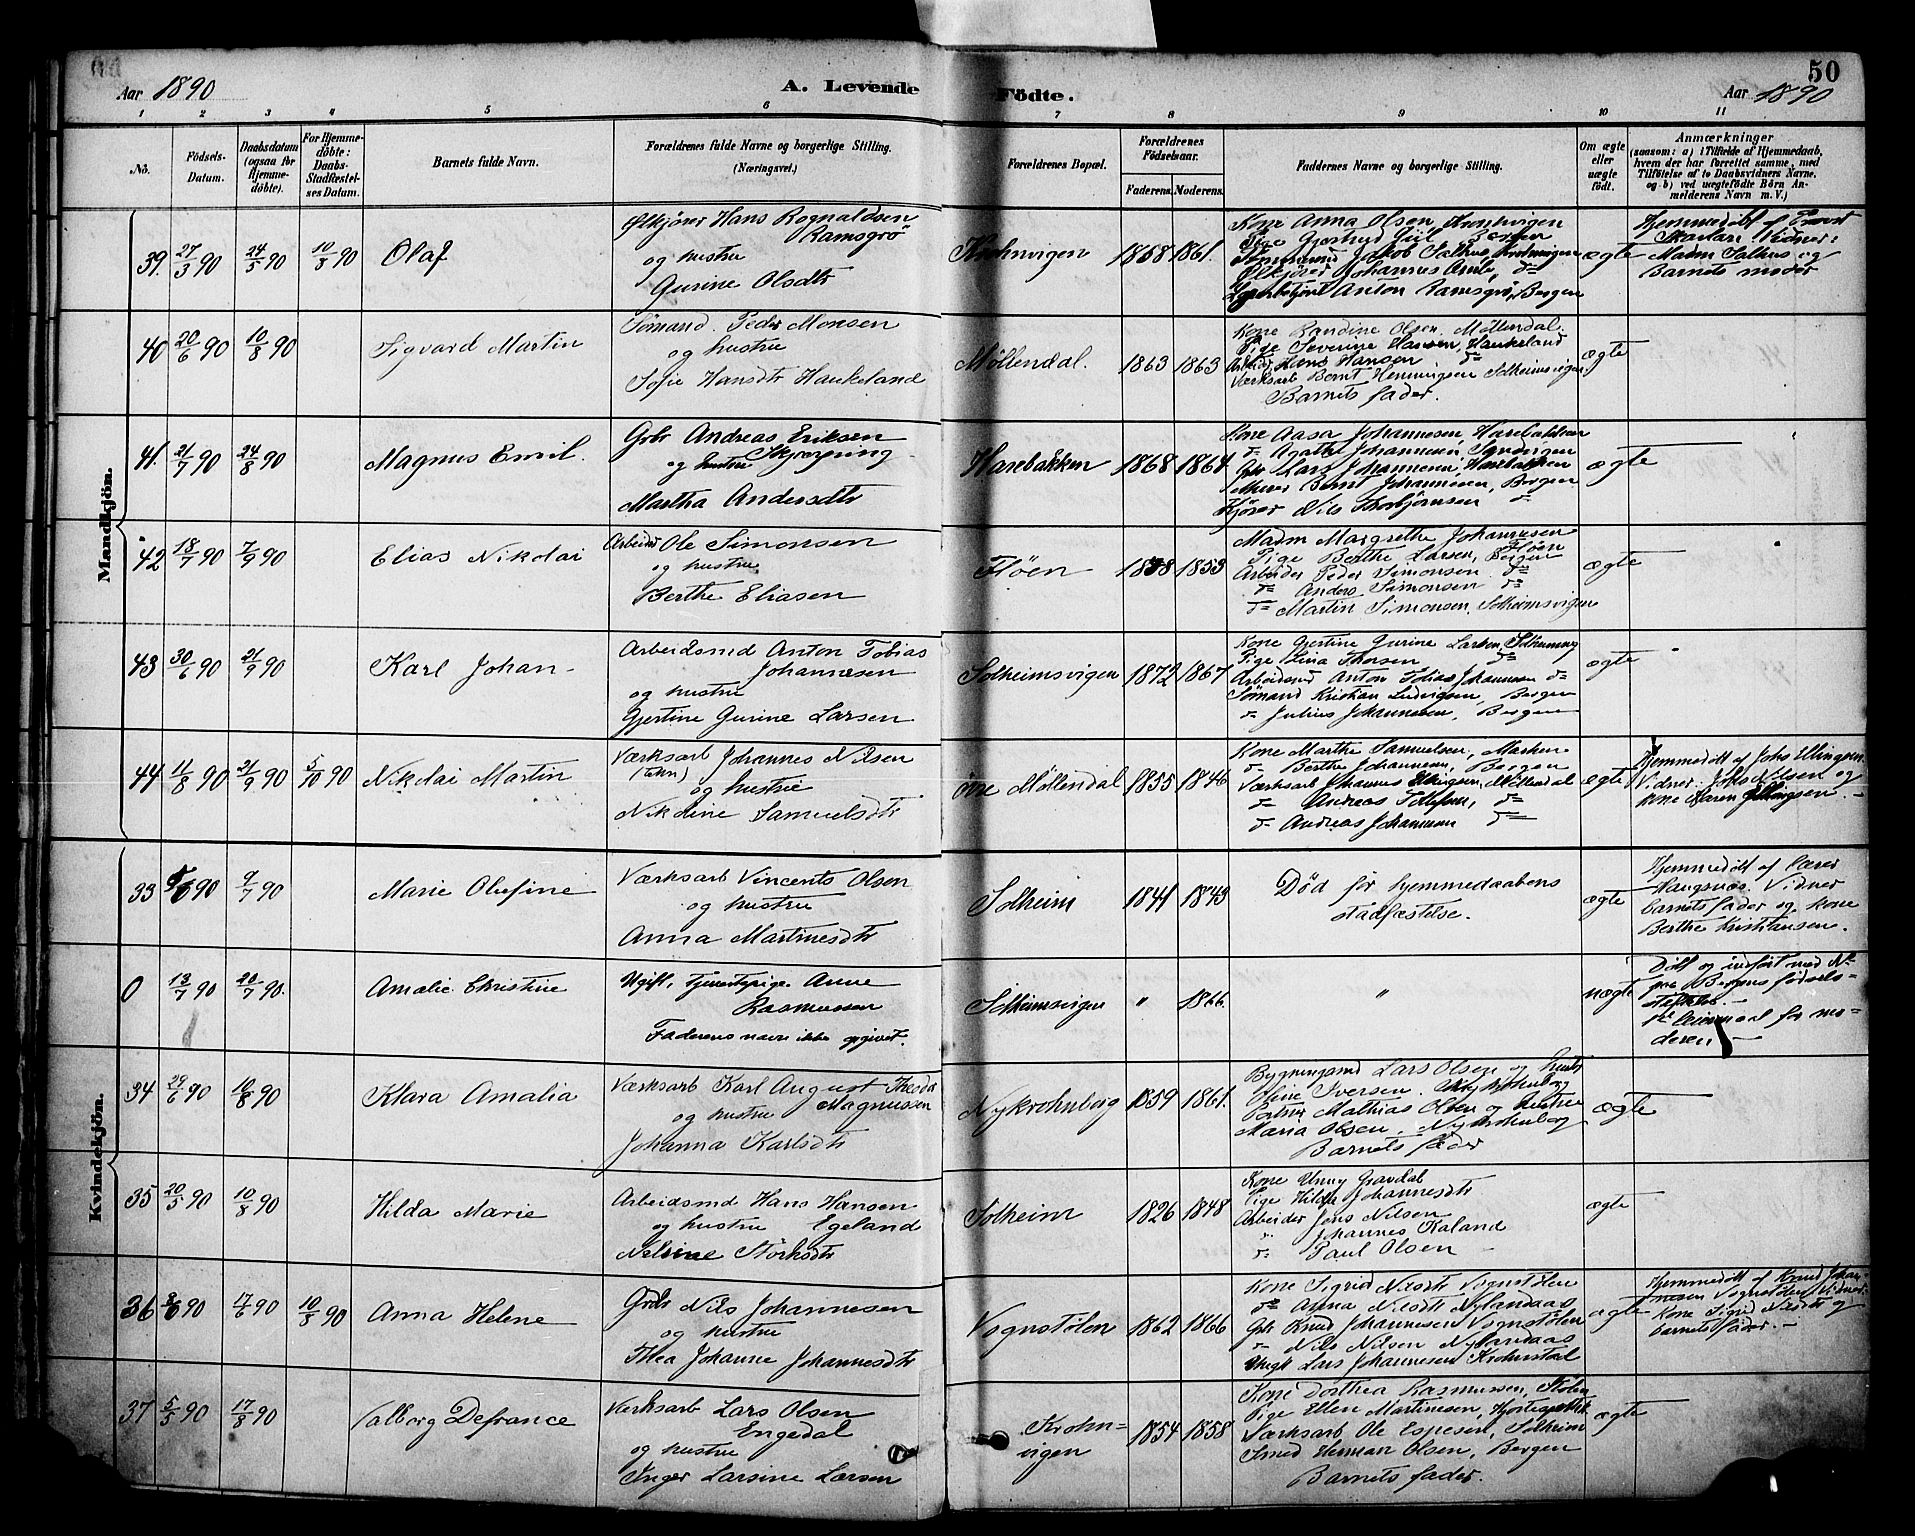 50
Aar 1890
A. Levende Födte.
Aar 1890
1 2 3 4 5 6 7 8 9 10 11
No.
Födsels-Datum.
Daabsdatum (ogsaa for Hjemmedöbte).
For Hjemmedöbte: Daabs-Stadfæstelses Datum.
Barnets fulde Navn.
Forældrenes fulde Navne og borgerlige Stilling.
(Næringsvei.)
Forældrenes Bopæl.
Forældrenes Födselsaar.
Faderens. Moderens.
Faddernes Navne og borgerlige Stilling.
Om ægte eller uægte födt.
Anmærkninger
(saasom: a) i Tilfælde af Hjemmedaab, hvem der har forrettet samme, med Tilföielse af to Daabsvidners Navne, og b) ved uegtefödte Börn Anmelderens Navn m. V.)
Mandkjön.
39. 27/3 90 24/5 90 10/8 90 Olaf
Ølkjører Hans Rognaldsen
Ramsgrø
og hustru
Gurine Olsdtr
Krohnvigen 1858 1861.
Kone Anna Olsen, Krohnvigen
Jakob Salhus, Krohnvigen
Ølkjører Johannes
Anton Ramsgrø, Bergen
ægte
Hjemmedøbt af
Vidner:
Madm Salhus og
Barnets moder
40 20/6 90 10/8 90 Sigvard Martin
Sømand. Peder Monsen
og hustru
Sofie Hansdtr Haukeland
Møllendal. 1863 1863
Kone Randine Olsen, Møllendal.
Pige Severine Hansen, Haukeland
Arbeider Hans Hansen do
Værksarb Bernt Henningsen Solheimsvigen
Barnets fader.
ægte
41. 21/7 90 24/8 90 Magnus Emil.
Gbr Andreas Eriksen
Skjærping
og hustru
Martha Andersdtr
Harebakken 1868 1864.
Kone Aasa Johannesen, Harebakken
do Agathe Johannesen, Sandvigen
Gbr Lars Johannesen, Harebakken
Murer Bernt Johannesen, Bergen
Kjører Nils Thorbjørnsen do
ægte
42 18/7 90 7/9 90 Elias Nikolai
Arbeider Ole Simonsen
og hustru
Berthe Eliasen
Fløen 1858 1853
Madm Margrethe Johannesen
Fløen
Pige Berthe Larsen, Bergen
Arbeider Peder Simonsen do
do Anders Simonsen do
do Martin Simonsen, Solheimsvigen
ægte
43 30/6 90 21/9 90 Karl Johan
Arbeidsmd Anton Tobias
Johannesen
og hustru
Gjertine Gurine Larsen
Solheimsvigen 1872 1867
Kone Gjertine Gurine Larsen, Solheimsvig
Pige Lina Thorsen do
Arbeidsmd Anton Tobias Johannesen do
Sømand Kristian Ludvigsen, Bergen
do Julius Johannesen, Bergen
ægte
44 11/8 90 21/9 90 5/10 90 Nikolai Martin
Værksarb Johannes Nilsen
og hustru
Nikoline Samuelsdtr
øvre Møllendal 1855 1846
Kone Marthe Samuelsen, Marken
do Berthe Johannesen, Bergen
Værksarb Johannes Ellingsen, Møllendal
do Andreas Tollefsen, do
do Andreas Johannesen do
ægte
Hjemmedøbt af Johs Ellingsen
Vidner: Johs Nilsen og
kone Karen Ellingsen.
Kvindekjön.
33 90 9/7 90 Marie Olufine
Værksarb Vincents Olsen
og hustru
Anna Martinesdtr
Solheim 1841 1843
Død før hjemmedaabens
stadfæstelse.
ægte
Hjemmedøbt af lærer
Haugsnæs. Vidner
barnets fader og kone
Berthe Kristiansen.
0 13/7 90 20/7 90. Amalie Christine
Ugift, tjenestepige Anne
Rasmussen
Faderens navn ikke opgivet.
Solheimsvigen " 1866.
"
uægte
Døbt og indført med No
paa Bergens fødsels-
stiftelse.
1ste leiermaal for mo-
deren
34 29/6 90 10/8 90 Klara Amalia
Værksarb Karl August Theodor
Magnussen
og hustru
Johanna Karlsdtr
Nykrohnborg 1859 1861.
Bygningsmd Lars Olsen og hustru
Oline Iversen. Nykrohnborg
Mathias Olsen og hustru
Maria Olsen, Nykrohnborg
Barnets fader
ægte
35 20/5 90 10/8 90 Hilda Marie
Arbeidsmd Hans Hansen
Egeland
og hustru
Nelsine Størksdtr
Solheim 1826 1848
Kone Unny Gravdal
Pige Hilda Johannesdtr
Arbeider Jens Nilsen
" Johannes Kaland
do Paul Olsen
ægte
36 90 17/6 90 10/8 90 Anna Helene
Gbr Nils Johannesen
og hustru
Thea Johanne Johannesdtr
Vognstølen 1862 1866
Kone Sigrid Nilsdtr Vognstølen
do Anna Nilsdtr Nylandaas
Gbr Knud Johannesen Vognstølen
do Nils Nilsen Nylandaas
Ungk Lars Johannesen Krohnstad
ægte
Hjemmedøbt af Knud Johan-
nesen Vognstølen Vidner:
Kone Sigrid Nilsdtr og
barnets fader.
37 5/5 90 17/8 90 Valborg Defrance
Værksarb Lars Olsen
Engedal
og hustru
Inger Larsine Larsen
Krohn-
vigen 1854 1858
Kone Dorthea Rasmussen, Stølen
Pige Ellen Martinesen,
Værksarb Ole Espesen, Solheim
Smed Herman Olsen, Bergen
Barnets fader.
ægte